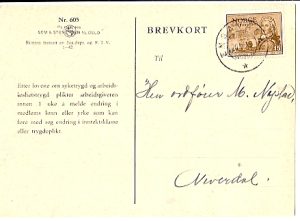 Nr. 605
SEM & STENERSEN A/S, OSLO
BREVKORT
NORGE
Til
Etter lovene om syketrygd og arbeids-
løshetstrygd plikter arbeidsgiveren
innen 1 uke å melde endring i
medlems lønn eller yrke som kan
føre med seg endring i inntektsklasse
eller trygdeplikt.
Herr ordfører M.
Neverdal.